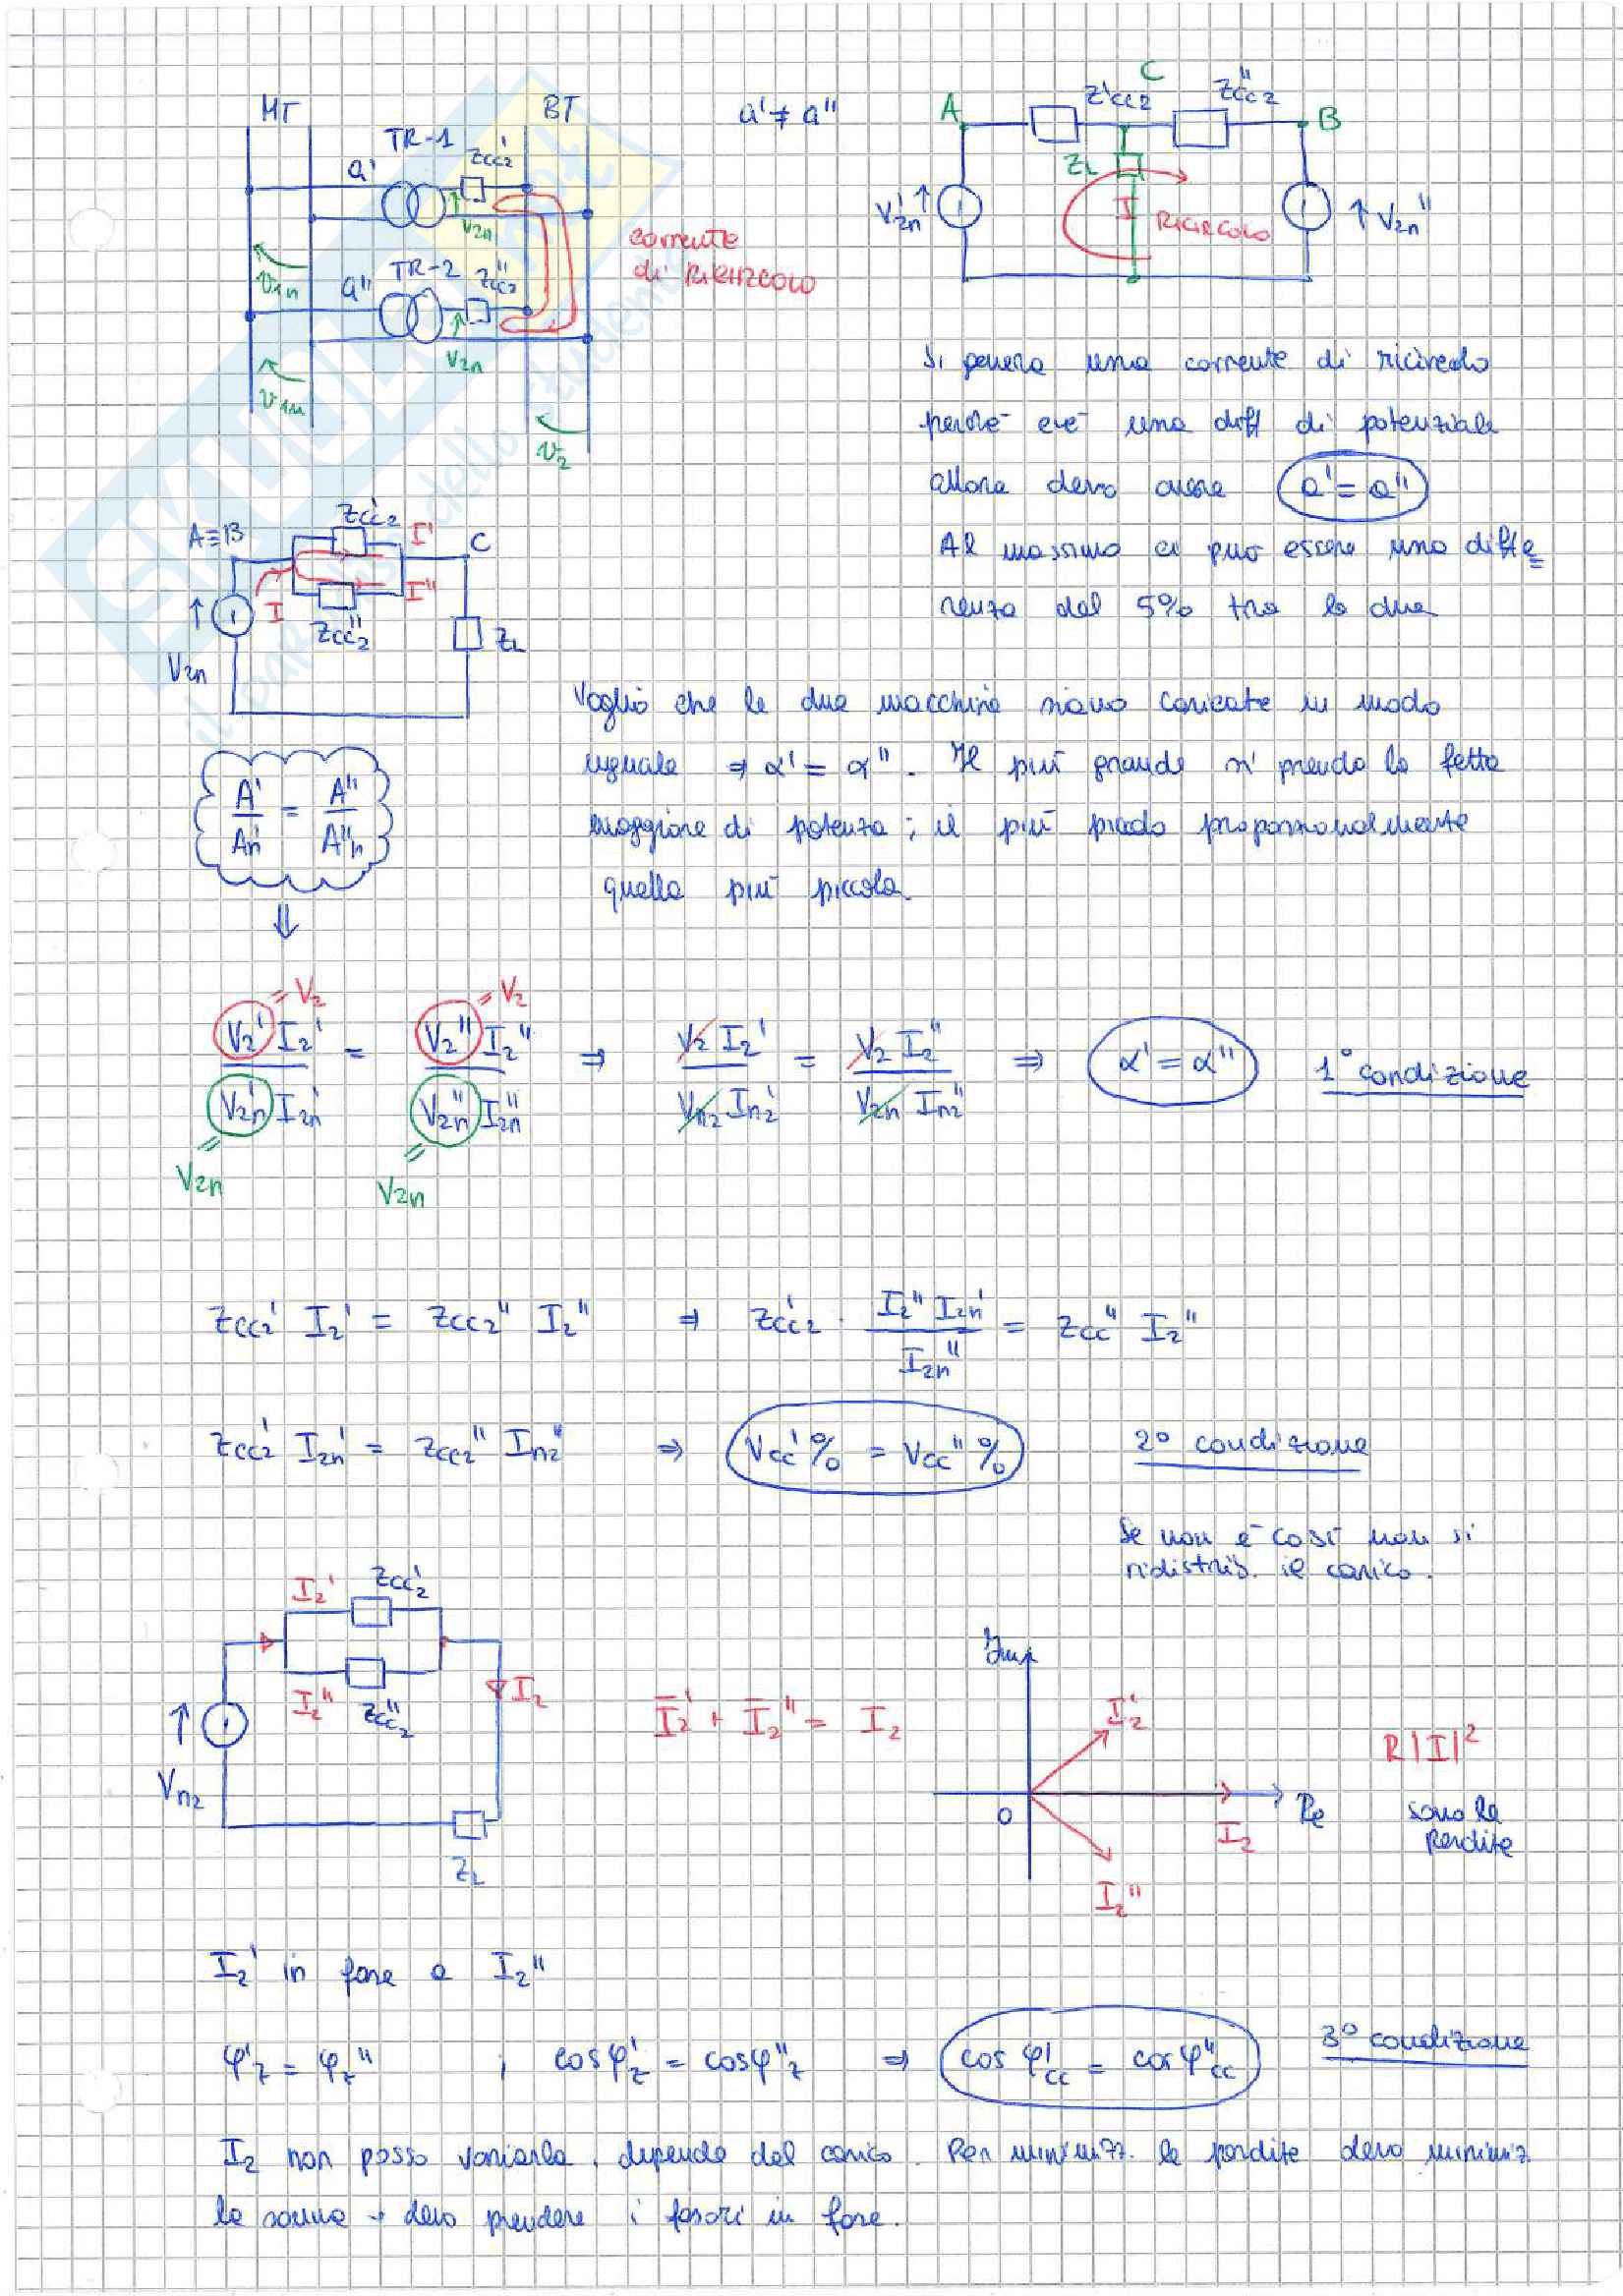 MT
BT
a' ≠ a"
TR-1
a'
Zcc2'
V2n
V1n
TR-2
a"
Zcc2"
V2n
V1n
V2
corrente
di RICIRCOLO
C
A
Z'cc2
Z"cc2
B
ZL
V2n'
I RICIRCOLO
V2n"
Si genera una corrente di ricircolo
perché c'è una diff di potenziale
allora devo avere a' = a"
Al massimo ci può essere una diffe
renza del 5% tra le due
A≡B
Zcc2'
I'
C
I
I"
Zcc2"
ZL
V2n
Voglio che le due macchine siano caricate in modo
uguale ⇒ α' = α". Il più grande si prende la fetta
maggiore di potenza; il più piccolo proporzionalmente
quella più piccola.
A'/An' = A"/An"
⇓
= V2
= V2
V2' I2' / V2n' I2n' = V2" I2" / V2n" I2n" ⇒ V2 I2' / Vn2 In2' = V2 I2" / V2n In2" ⇒ α' = α" 1° condizione
V2n
V2n
Zcc2' I2' = Zcc2" I2" ⇒ Zcc2' · I2" I2n' / I2n" = Zcc" I2"
Zcc2' I2n' = Zcc2" In2" ⇒ Vcc'% = Vcc"% 2° condizione
Se non è così non si
ridistrib. il carico.
I2'
Zcc2'
I2"
Zcc2"
I2
Vn2
ZL
I2' + I2" = I2
Im
I2'
O
Re
I2
I2"
R|I|²
sono le
perdite
I2' in fase a I2"
φ'z = φz" ; cosφz' = cosφ"z ⇒ cos φ'cc = cosφ"cc 3° condizione
I2 non posso variarla, dipende dal carico. Per minimizz. le perdite devo minimiz
la somma → devo prendere i fasori in fase.